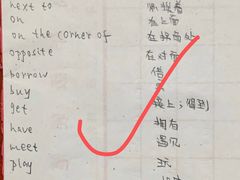 next to 紧挨着
on 在上面
on the corner of 在拐角处
opposite 在对面
borrow 借
buy 买
get 得到
have 拥有
meet 遇见
play 玩